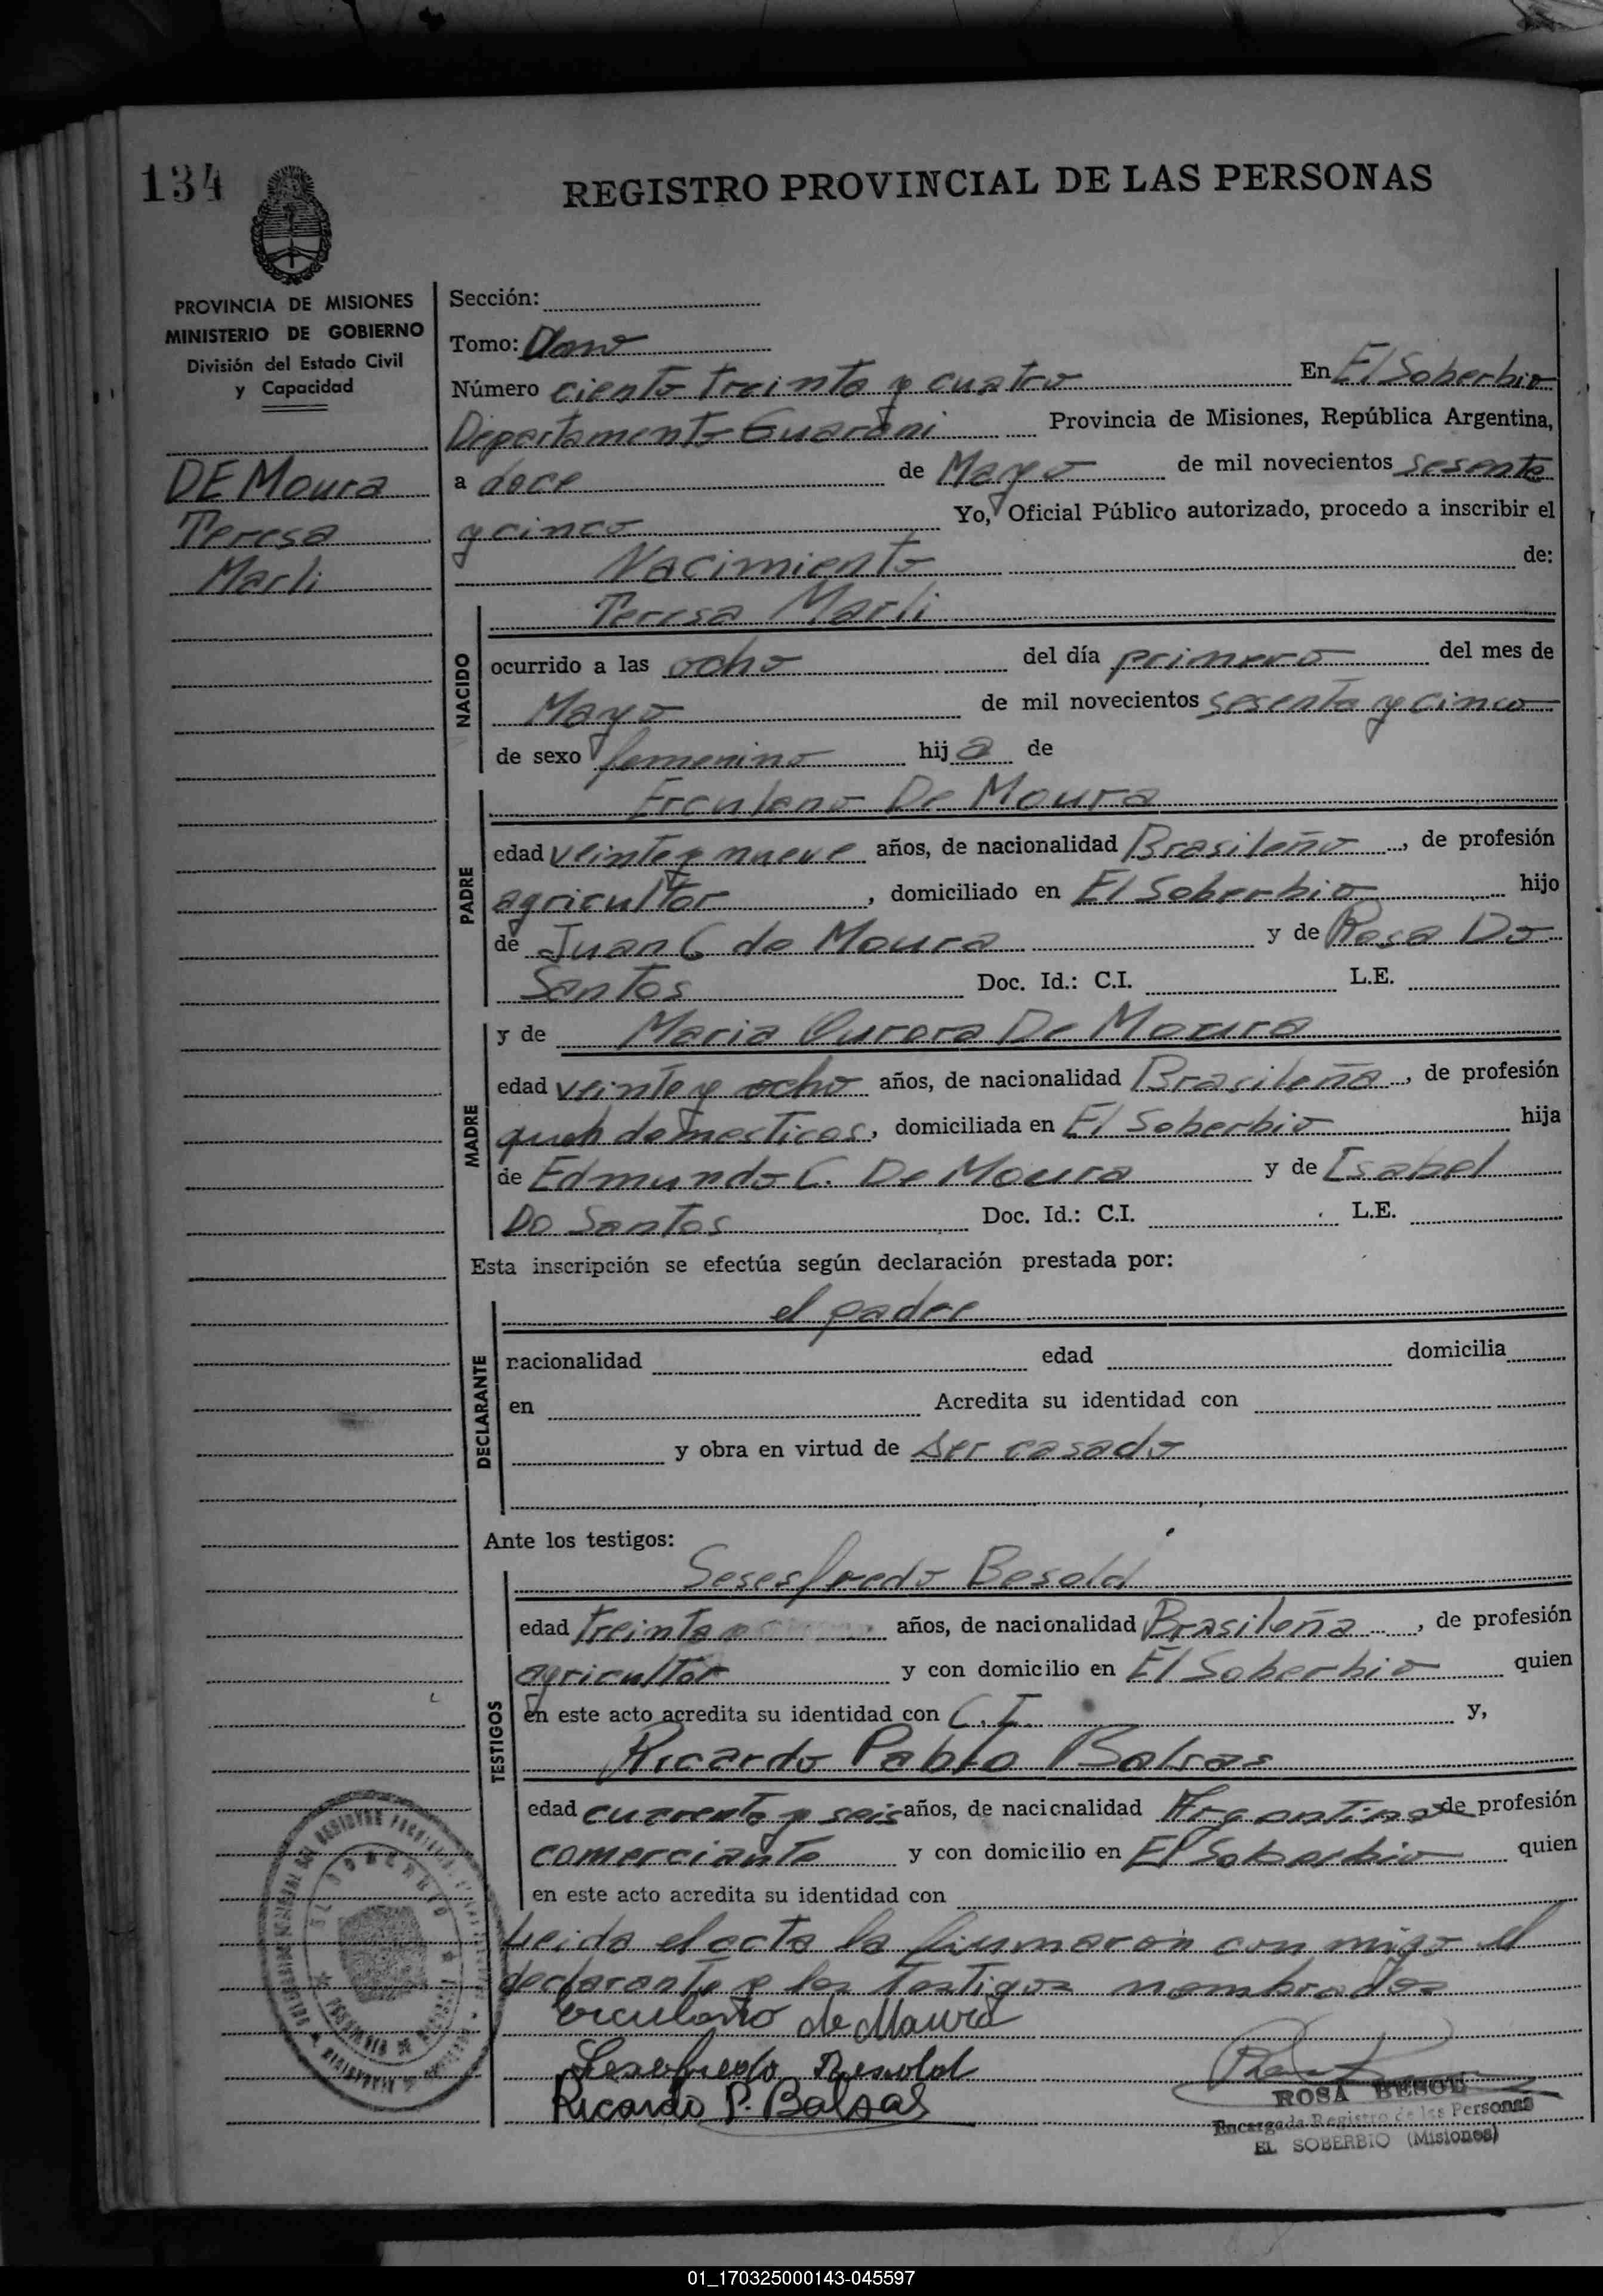 134
REGISTRO PROVINCIAL DE LAS PERSONAS
PROVINCIA DE MISIONES
MINISTERIO DE GOBIERNO
División del Estado Civil
y Capacidad
DE Moura
Teresa
Marli
Sección:
Tomo:
Número ciento treinta y cuatro En El Soberbio
Departamento Guarani Provincia de Misiones, República Argentina,
a doce de Mayo de mil novecientos sesenta
y cinco Yo, Oficial Público autorizado, procedo a inscribir el
Nacimiento de:
NACIDO
Teresa Marli
ocurrido a las ocho del día primero del mes de
Mayo de mil novecientos sesenta y cinco
de sexo femenino hija de
PADRE
Erculano De Moura
edad veinte y nueve años, de nacionalidad Brasileño, de profesión
agricultor, domiciliado en El Soberbio hijo
de Juan C de Moura y de Rosa Do
Santos Doc. Id.: C.I. L.E.
MADRE
y de Maria Aurora De Moura
edad veinte y ocho años, de nacionalidad Brasileña, de profesión
queh domesticos, domiciliada en El Soberbio hija
de Edmundo C. De Moura y de Isabel
Do Santos Doc. Id.: C.I. L.E.
Esta inscripción se efectúa según declaración prestada por:
DECLARANTE
el padre
nacionalidad edad domicilia
en Acredita su identidad con
y obra en virtud de ser casado
Ante los testigos:
TESTIGOS
Sesesfredo Besold
edad treinta años, de nacionalidad Brasileña, de profesión
agricultor y con domicilio en El Soberbio quien
en este acto acredita su identidad con C.I. y,
Ricardo Pablo Balsas
edad cuarenta y seis años, de nacionalidad Argentino de profesión
comerciante y con domicilio en El Soberbio quien
en este acto acredita su identidad con
Leida el acta la firmaron con migo el
declarante y los testigos nombrados
Erculano de Moura
Sesefredo Besold
Ricardo P. Balsas
EL SOBERBIO
ROSA
Encargada Registro de las Personas
EL SOBERBIO (Misiones)
01_170325000143-045597